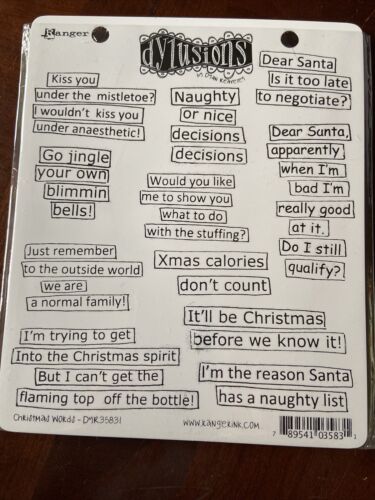 Ranger
dylusions
by Dyan Reaveley
Kiss you
under the mistletoe?
I wouldn't kiss you
under anaesthetic!
Naughty
or nice
decisions
decisions
Dear Santa
Is it too late
to negotiate?
Go jingle
your own
blimmin
bells!
Would you like
me to show you
what to do
with the stuffing?
Dear Santa,
apparently
when I'm
bad I'm
really good
at it.
Do I still
qualify?
Just remember
to the outside world
we are
a normal family!
Xmas calories
don't count
It'll be Christmas
before we know it!
I'm trying to get
Into the Christmas spirit
But I can't get the
flaming top off the bottle!
I'm the reason Santa
has a naughty list
Christmas Words - DYR35831
www.rangerink.com
7 89541 03583 1